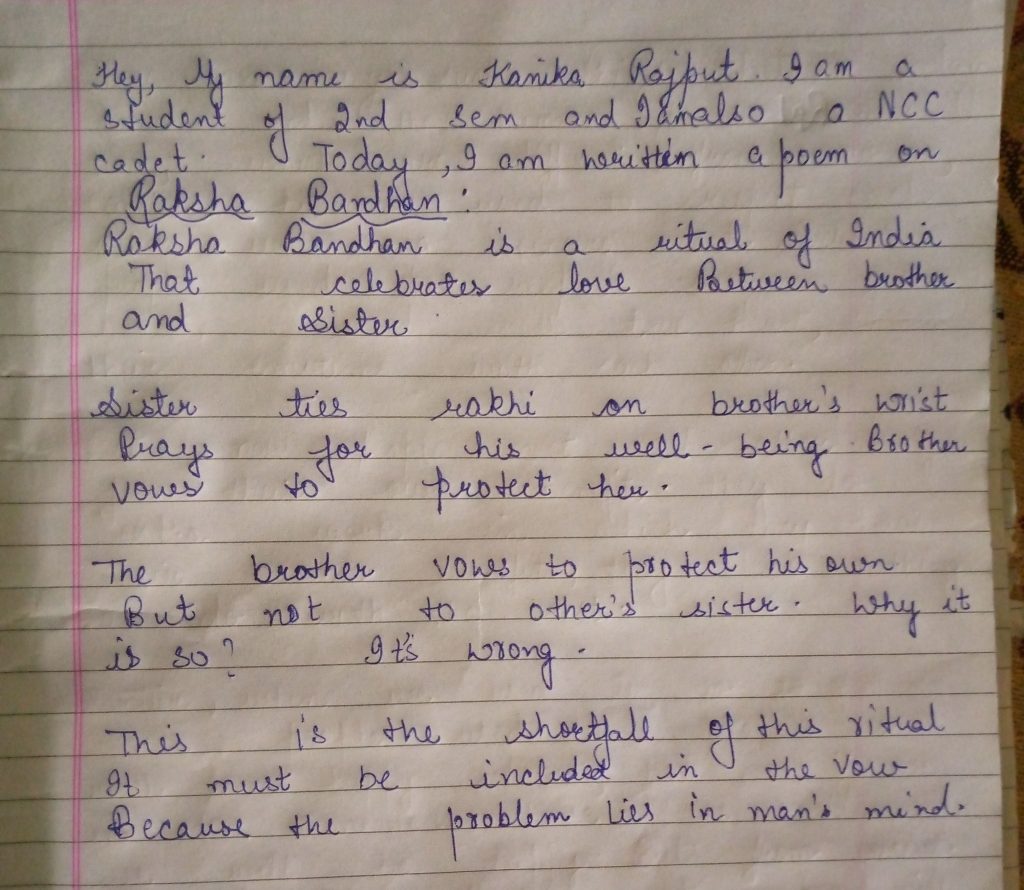 Hey, My name is Kanika Rajput. I am a
student of 2nd sem and I am also a NCC
cadet. Today, I am writtem a poem on
Raksha Bandhan:
Raksha Bandhan is a ritual of India
That celebrates love Between brother
and sister.
Sister ties rakhi on brother's wrist
Prays for his well-being. Brother
vows to protect her.
The brother vows to protect his own
But not to other's sister. Why it
is so? It's wrong.
This is the shortfall of this ritual
It must be included in the vow
Because the problem lies in man's mind.